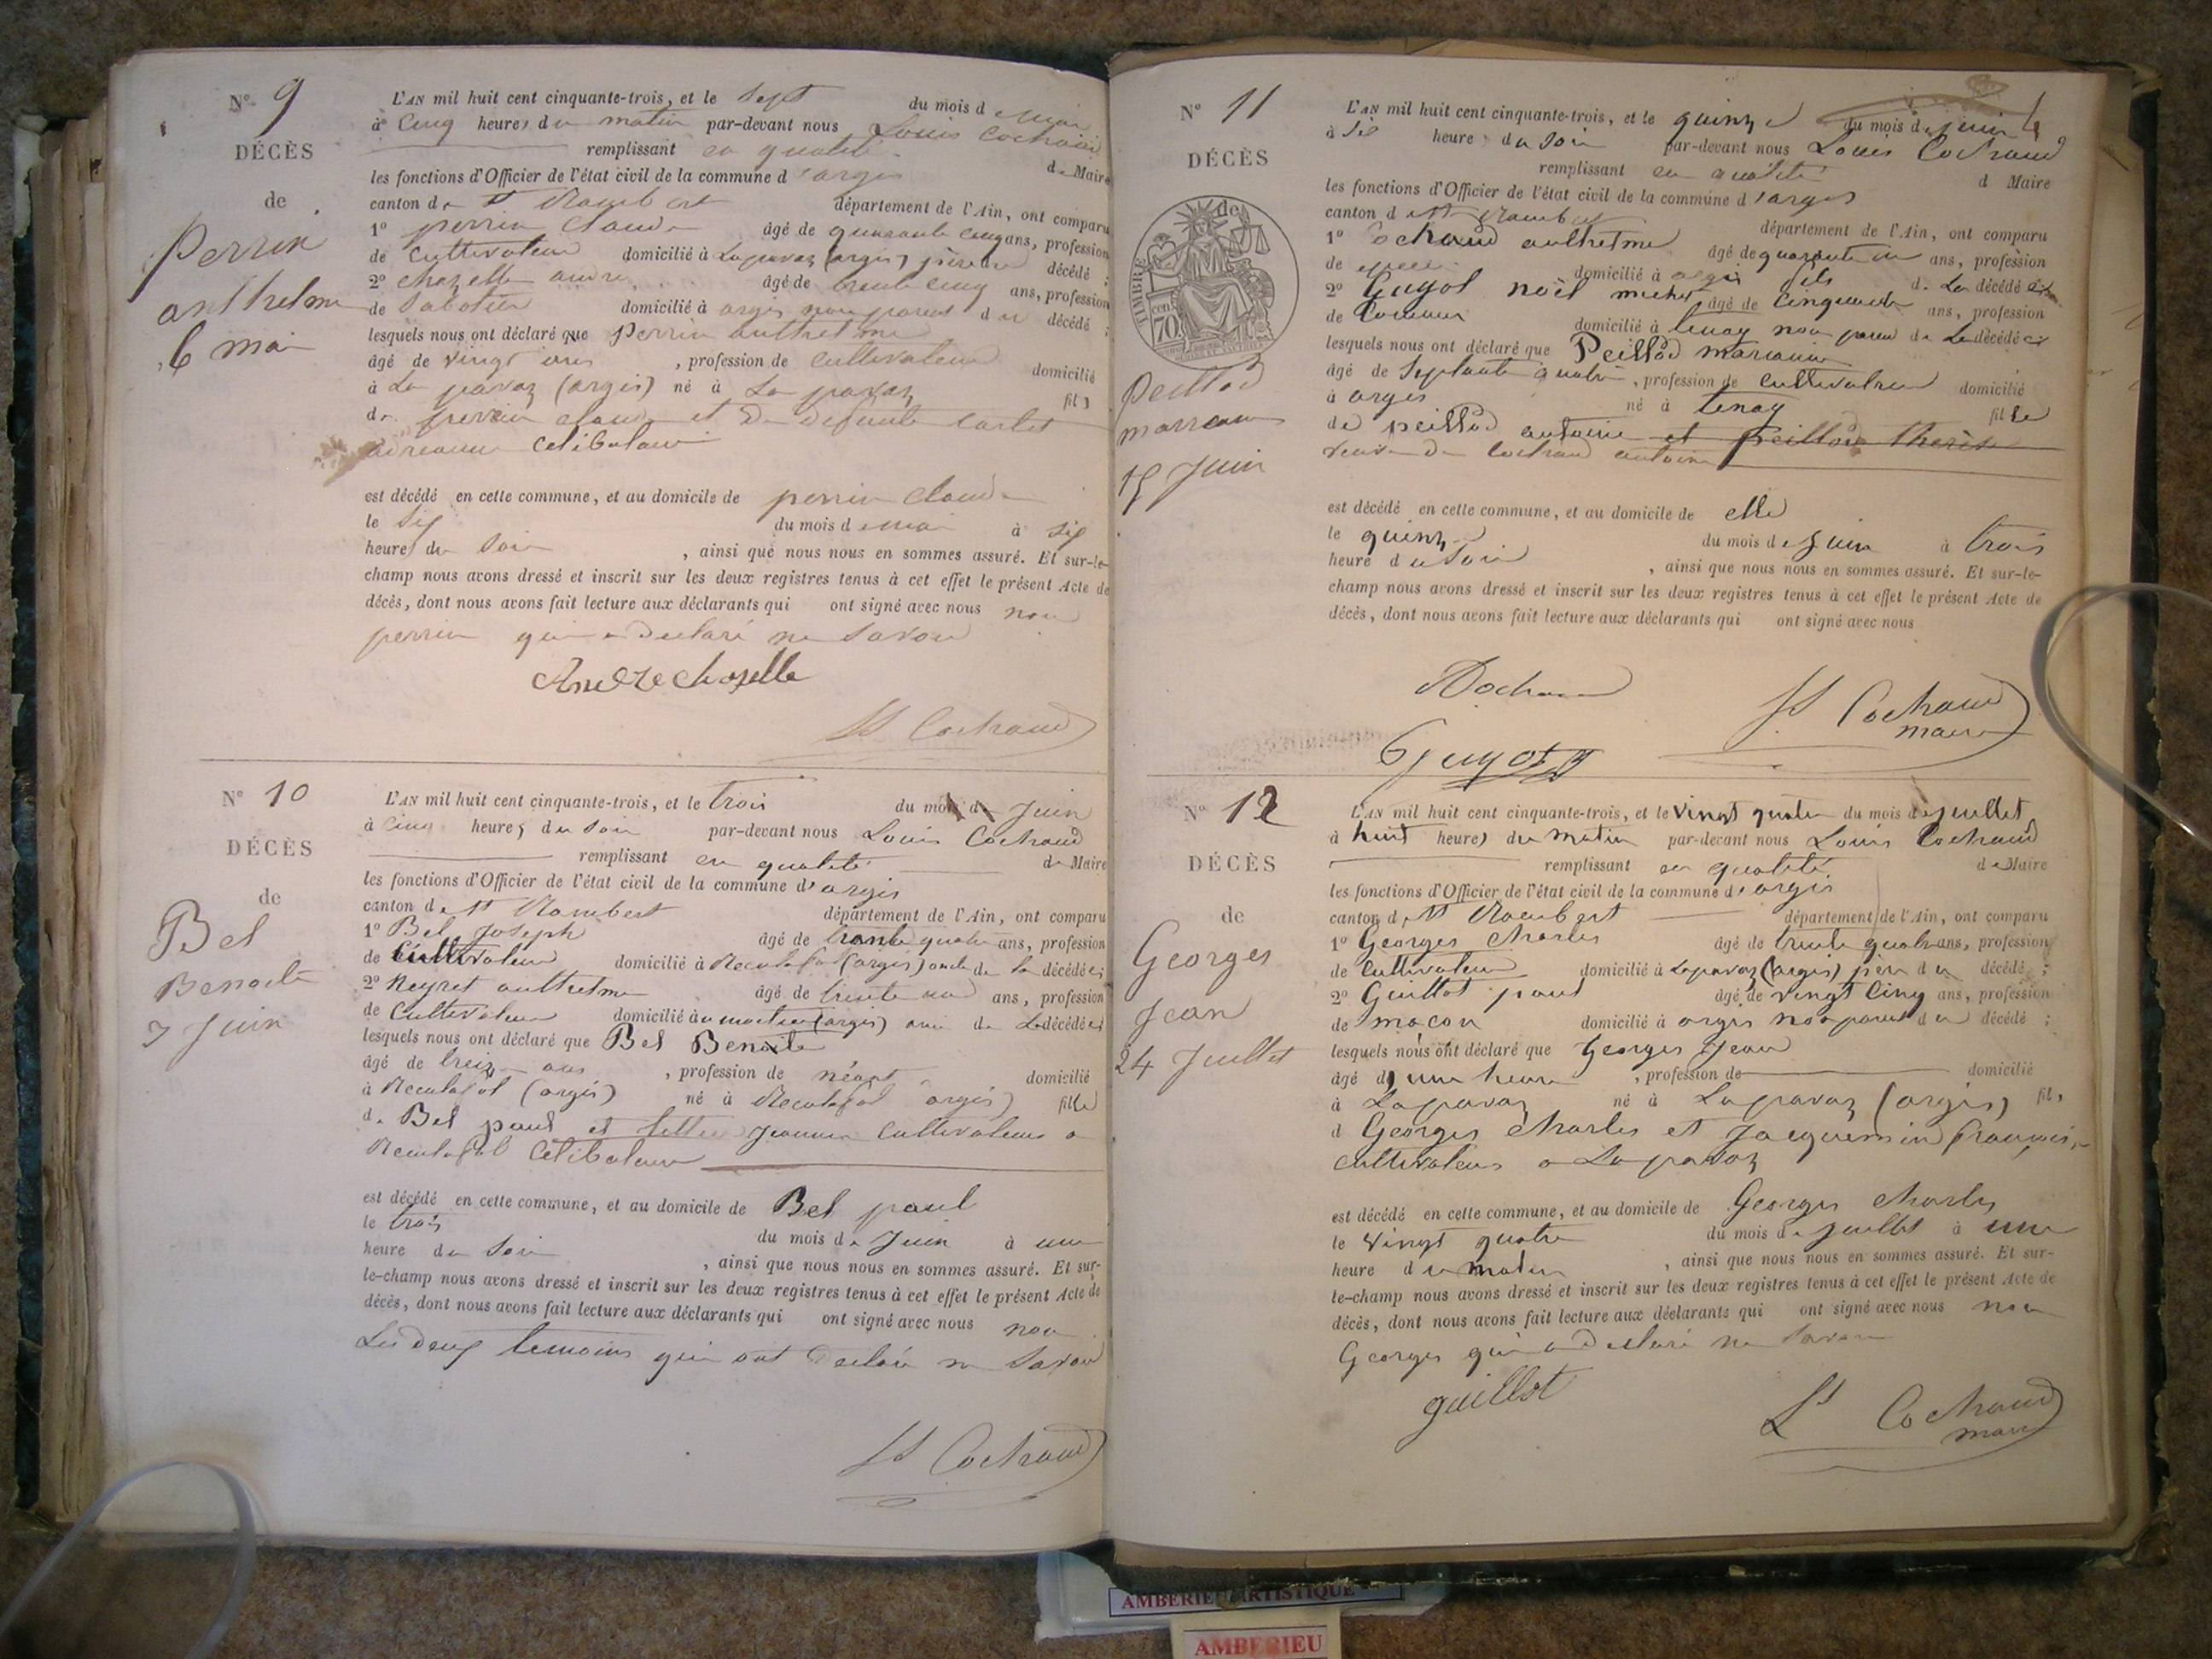 N° 9
DÉCÈS
de
Perrin
anthelme
6 mai
L'AN mil huit cent cinquante-trois, et le Sept du mois de mai
à Cinq heures du matin par-devant nous Louis Cochaud
remplissant en qualité de Maire
les fonctions d'Officier de l'état civil de la commune d'argis
canton de St Rambert département de l'Ain, ont comparu
1° perrin Claude âgé de quarante cinq ans, profession
de Cultivateur domicilié à Lapavaz (argis) père du décédé ;
2° chozelle andré âgé de trente cinq ans, profession
de Sabotier domicilié à argis non parent du décédé ;
lesquels nous ont déclaré que Perrin anthelme
âgé de vingt ans, profession de cultivateur domicilié
à La pavaz (argis) né à La pavaz fils
de perrin claude et De Defunte Carlet
Celibataire
est décédé en cette commune, et au domicile de perrin Claude
le Six du mois de mai à Six
heures du Soir, ainsi que nous nous en sommes assuré. Et sur-le-
champ nous avons dressé et inscrit sur les deux registres tenus à cet effet le présent Acte de
décès, dont nous avons fait lecture aux déclarants qui ont signé avec nous non
perrin qui a Declaré ne Savoir
Andre Chozelle
Ls Cochaud
N° 10
DÉCÈS
de
Bel
Benoite
3 Juin
L'AN mil huit cent cinquante-trois, et le trois du mois de Juin
à Cinq heures du Soir par-devant nous Louis Cochaud
remplissant en qualité de Maire
les fonctions d'Officier de l'état civil de la commune d'argis
canton de St Rambert département de l'Ain, ont comparu
1° Bel Joseph âgé de trente quatre ans, profession
de Cultivateur domicilié à Reculafol (argis) oncle de la décédée ;
2° Neyret anthelme âgé de trente ans, profession
de Cultivateur domicilié au (argis) ami de La décédée ;
lesquels nous ont déclaré que Bel Benoite
âgé de treize ans, profession de néant domicilié
à Reculafol (argis) né à Reculafol argis) fille
de Bel paul et Jeanne Cultivateurs a
Reculafol Celibataire
est décédé en cette commune, et au domicile de Bel paul
le trois du mois de Juin à une
heure du Soir, ainsi que nous nous en sommes assuré. Et sur-
le-champ nous avons dressé et inscrit sur les deux registres tenus à cet effet le présent Acte de
décès, dont nous avons fait lecture aux déclarants qui ont signé avec nous non
Les deux temoins qui ont Declaré ne Savoir
Ls Cochaud
N° 11
DÉCÈS
de
TIMBRE
70
Peillod
marianne
15 Juin
L'AN mil huit cent cinquante-trois, et le quinze du mois de juin
à Six heures du Soir par-devant nous Louis Cochaud
remplissant en qualité d Maire
les fonctions d'Officier de l'état civil de la commune d'argis
canton de St Rambert département de l'Ain, ont comparu
1° Cochaud anthelme âgé de quarante un ans, profession
de domicilié à argis fils de La décédée
2° Guyot noël michel âgé de Cinquante ans, profession
de domicilié à tenay non parent de La décédée
lesquels nous ont déclaré que Peillod marianne
âgé de Septante quatre, profession de Cultivatrice domicilié
à argis né à tenay fille
de peillod antoine et peillod therèse
veuve De Cochaud antoine
est décédé en cette commune, et au domicile de elle
le quinze du mois de Juin à trois
heure du Soir, ainsi que nous nous en sommes assuré. Et sur-le-
champ nous avons dressé et inscrit sur les deux registres tenus à cet effet le présent Acte de
décès, dont nous avons fait lecture aux déclarants qui ont signé avec nous
Ls Cochaud
maire
Guyot
N° 12
DÉCÈS
de
Georges
Jean
24 Juillet
L'AN mil huit cent cinquante-trois, et le vingt quatre du mois de juillet
à huit heures du matin par-devant nous Louis Cochaud
remplissant en qualité de Maire
les fonctions d'Officier de l'état civil de la commune d'argis
canton de St Rambert département de l'Ain, ont comparu
1° Georges Charles âgé de trente quatre ans, profession
de Cultivateur domicilié à Lapavaz (argis) père du décédé ;
2° Guillot paul âgé de vingt Cinq ans, profession
de maçon domicilié à argis non parent du décédé ;
lesquels nous ont déclaré que Georges Jean
âgé d'une heure, profession de domicilié
à Lapavaz né à Lapavaz (argis) fils
d Georges Charles et Jacquemin françoise
cultivateurs a Lapavaz
est décédé en cette commune, et au domicile de Georges Charles
le vingt quatre du mois de juillet à une
heure du matin, ainsi que nous nous en sommes assuré. Et sur-
le-champ nous avons dressé et inscrit sur les deux registres tenus à cet effet le présent Acte de
décès, dont nous avons fait lecture aux déclarants qui ont signé avec nous non
Georges qui a Declaré ne Savoir
guillot
Ls Cochaud
maire
AMBERIEU ARTISTIQUE
AMBERIEU